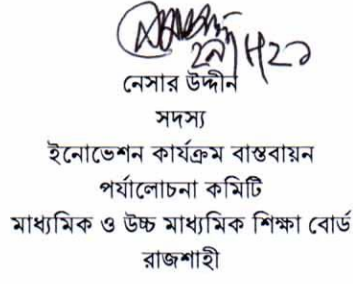 নেসার উদ্দীন
সদস্য
ইনোভেশন কার্যক্রম বাস্তবায়ন
পর্যালোচনা কমিটি
মাধ্যমিক ও উচ্চ মাধ্যমিক শিক্ষা বোর্ড
রাজশাহী